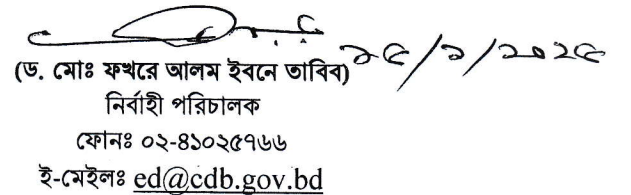 ১৫/১/২০২৫
(ড. মোঃ ফখরে আলম ইবনে তাবিব)
নির্বাহী পরিচালক
ফোনঃ ০২-৪১০২৫৭৬৬
ই-মেইলঃ ed@cdb.gov.bd